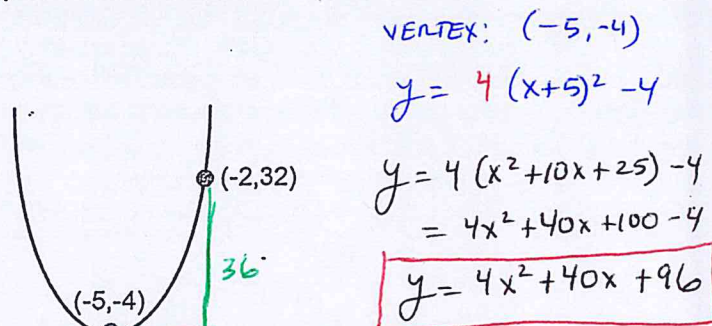 VERTEX: (-5,-4)
y = 4 (x+5)² -4
(-2,32)
y = 4 (x²+10x+25) -4
= 4x²+40x+100 -4
36
(-5,-4)
y = 4x²+40x +96